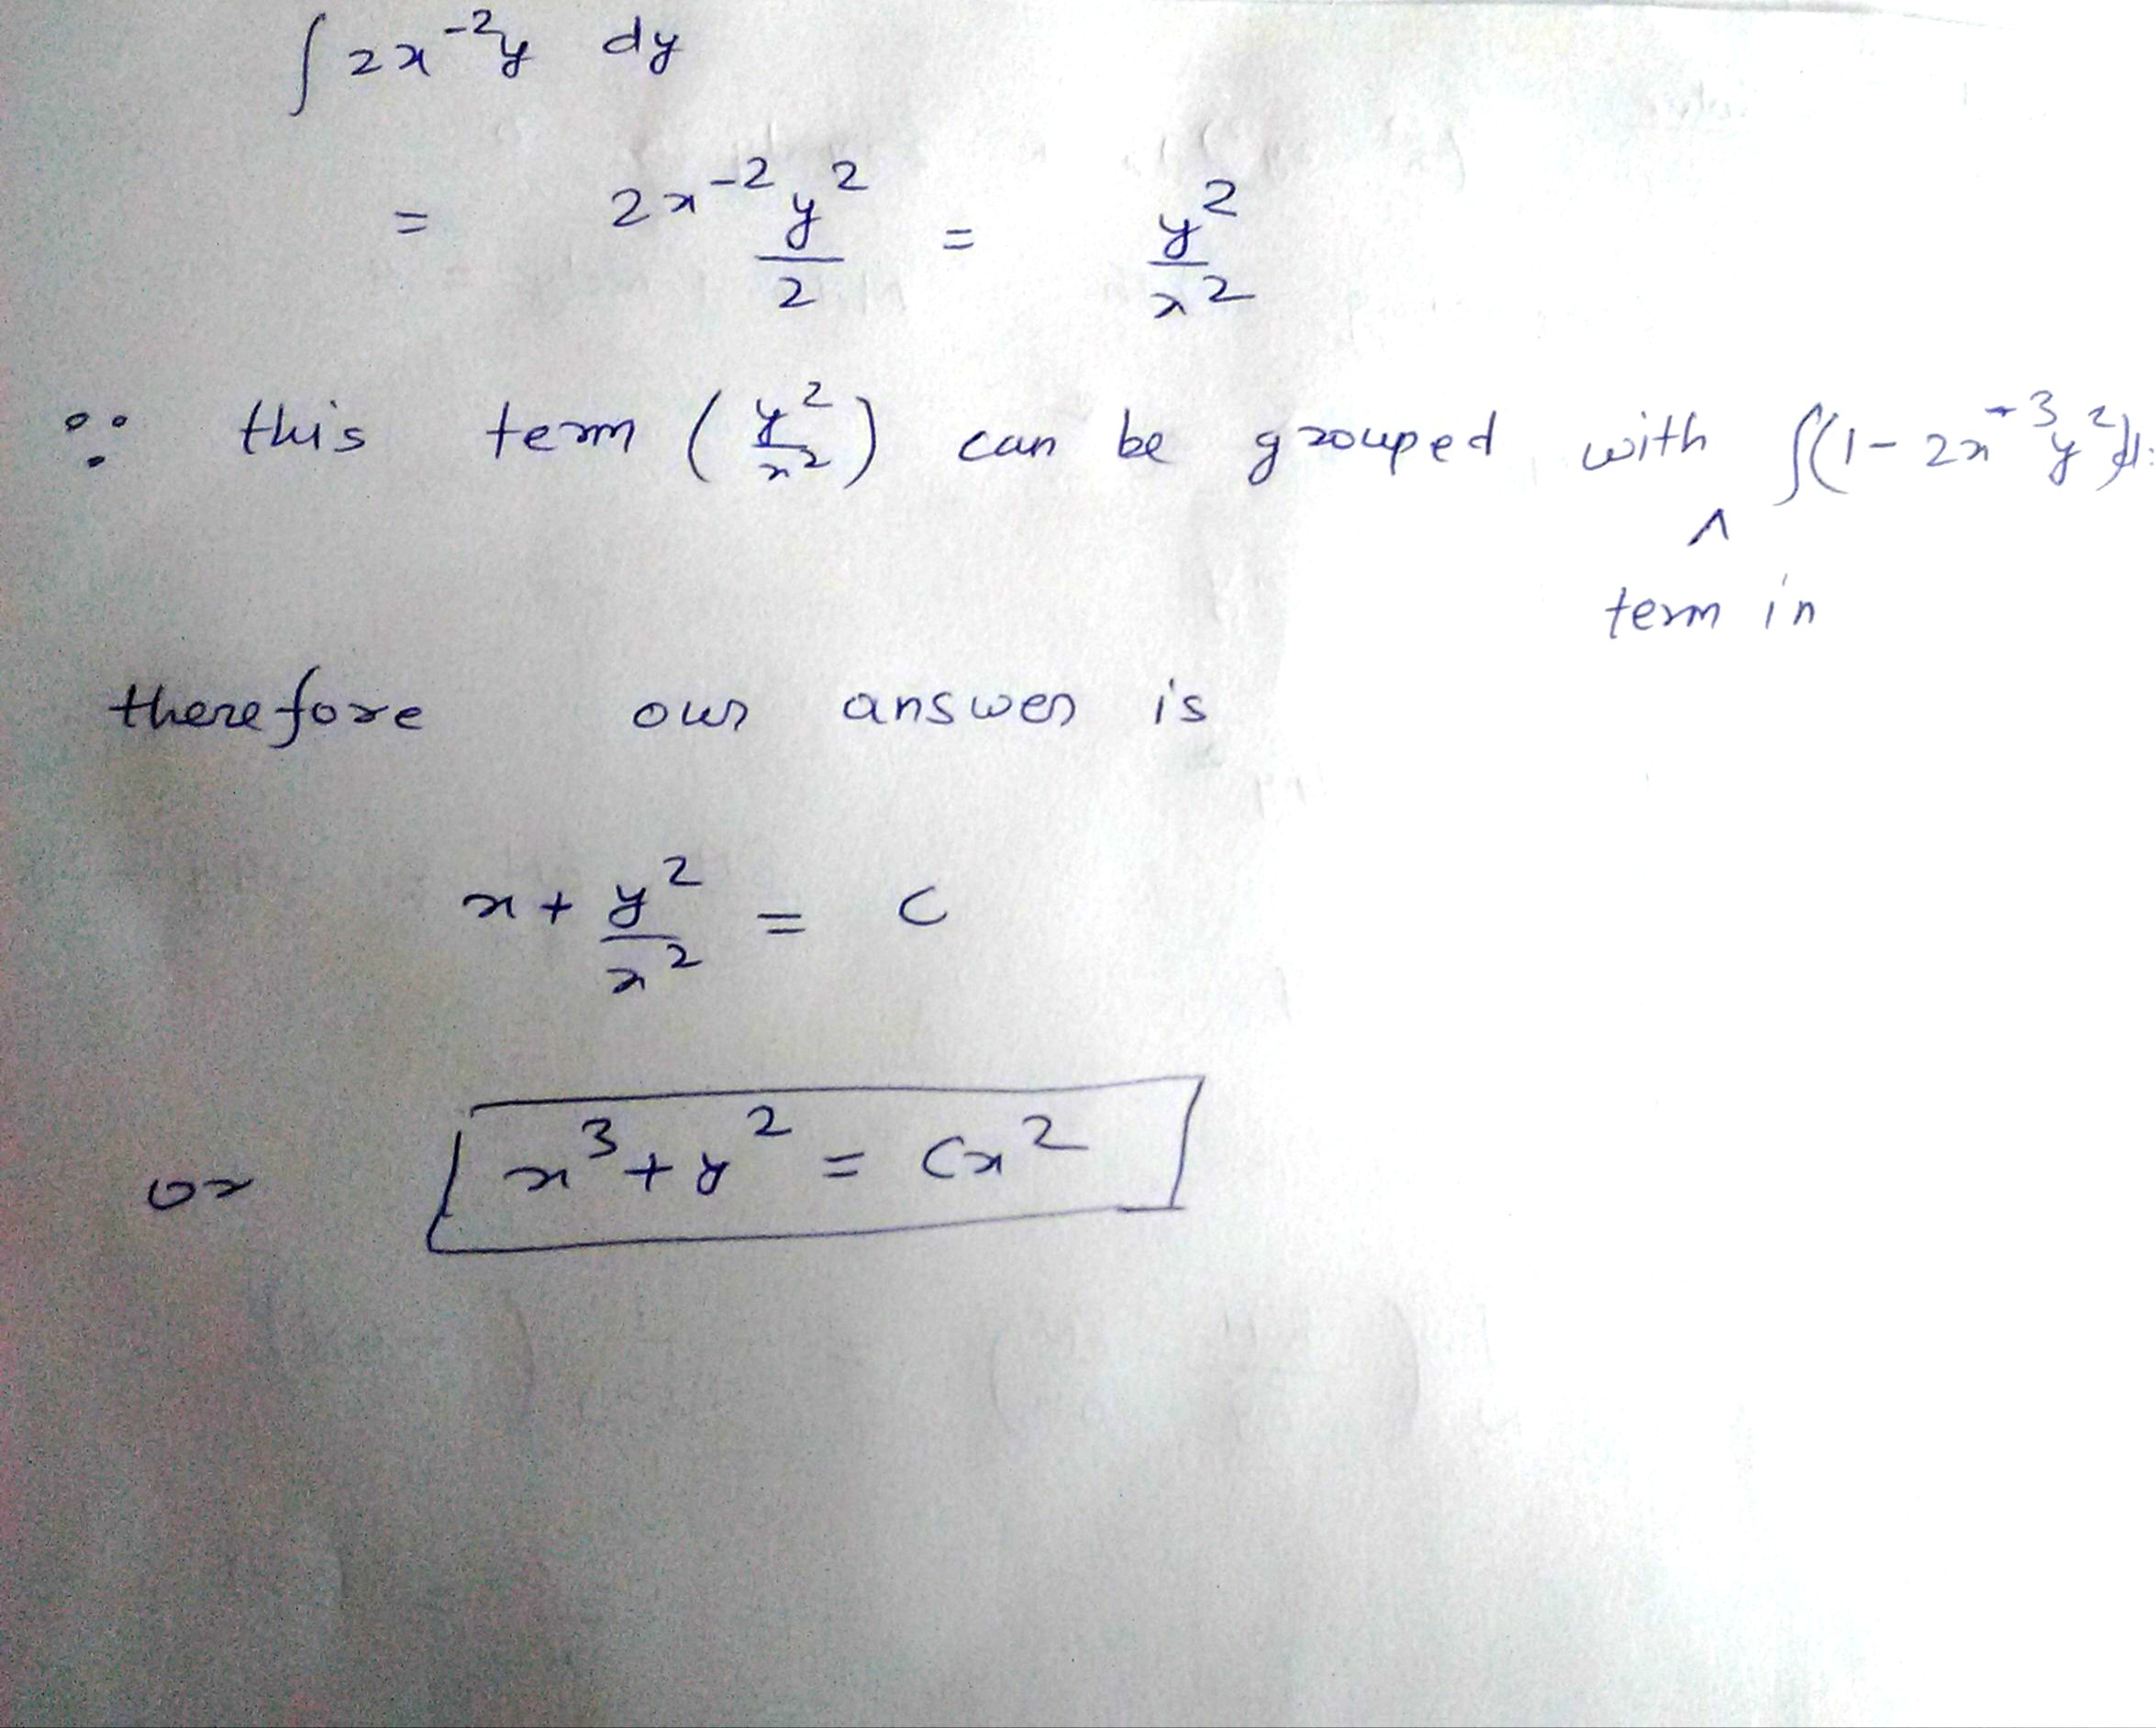 ∫ 2x⁻²y dy
= 2x⁻² y²/2 = y²/x²
∵ this term (y²/x²) can be grouped with ∫(1 - 2x⁻³y²)d
^
term in
therefore our answer is
x + y²/x² = c
or x³ + y² = Cx²